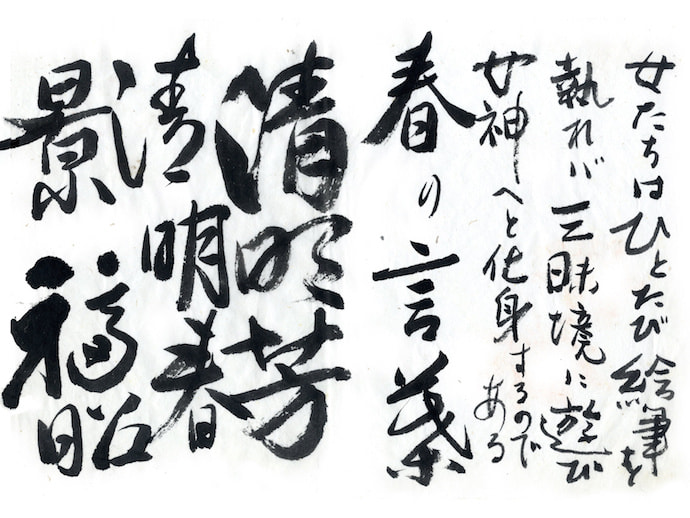 女たちはひとたび絵筆を
執れバ三昧境に遊び
女神へと化身するので
ある
春の言葉
清明芳
清明春
景福昭